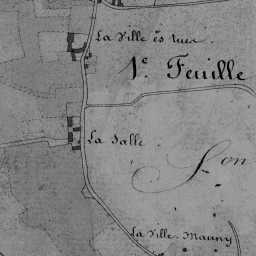 La Ville ès
1e. Feuille
La Salle
Son
La Ville Mauny